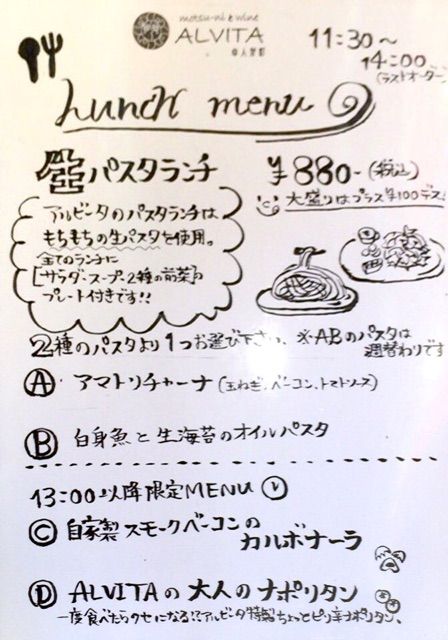 motsu-ni & wine
ALVITA
@人形町
11:30〜
14:00
(ラストオーダー)
Lunch menu
生パスタランチ
¥880-(税込)
大盛りはプラス¥100デス!
アルビータのパスタランチは
もちもちの生パスタを使用。
全てのランチに
[サラダ・スープ・2種の前菜]
プレート付きです!!
2種のパスタより1つお選び下さい、※ABのパスタは
週替わりです
Ⓐ・アマトリチャーナ(玉ねぎ、ベーコン、トマトソース)
Ⓑ・白身魚と生海苔のオイルパスタ
13:00以降限定MENU
Ⓒ・自家製スモークベーコンの
カルボナーラ
Ⓓ・ALVITAの大人のナポリタン
一度食べたらクセになる!?アルビータ特製ちょっとピリ辛ナポリタン、